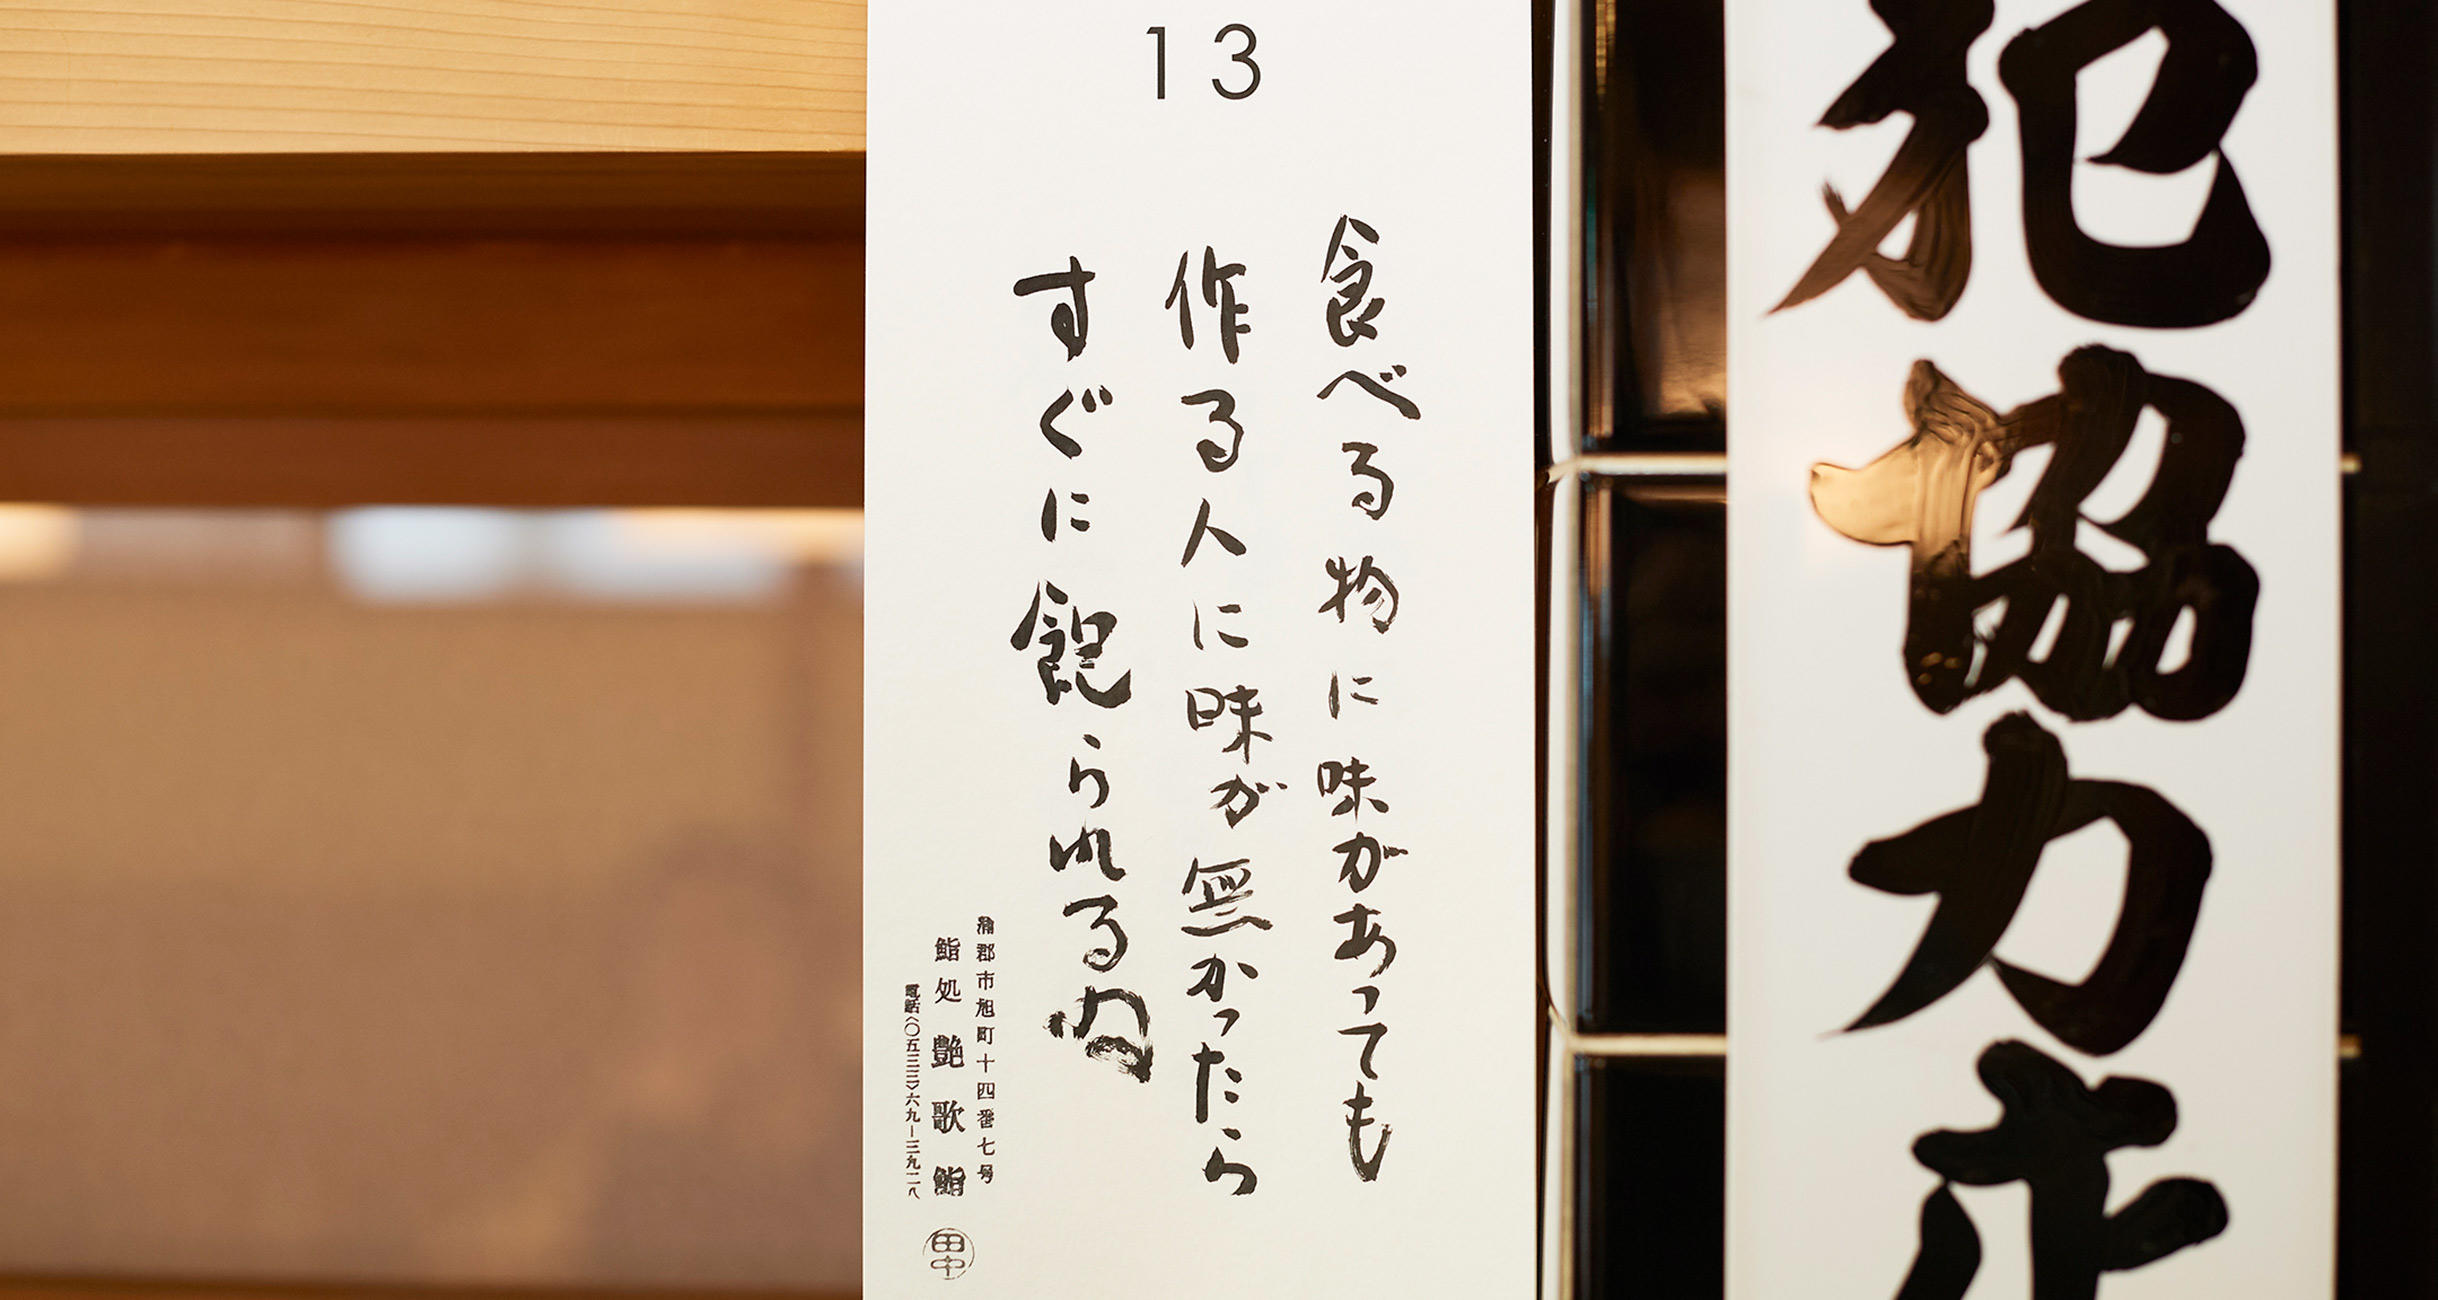 13
食べる物に味があっても
作る人に味が無かったら
すぐに飽られるゎ
蒲郡市旭町十四番七号
鮨処 艶歌鮨
電話〈〇五三三〉六九ー三九二八
田中
犯協力店